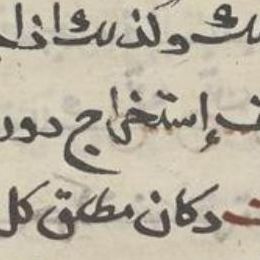 وكذلك اذا
إستخراج دور
وكان مطلق كل